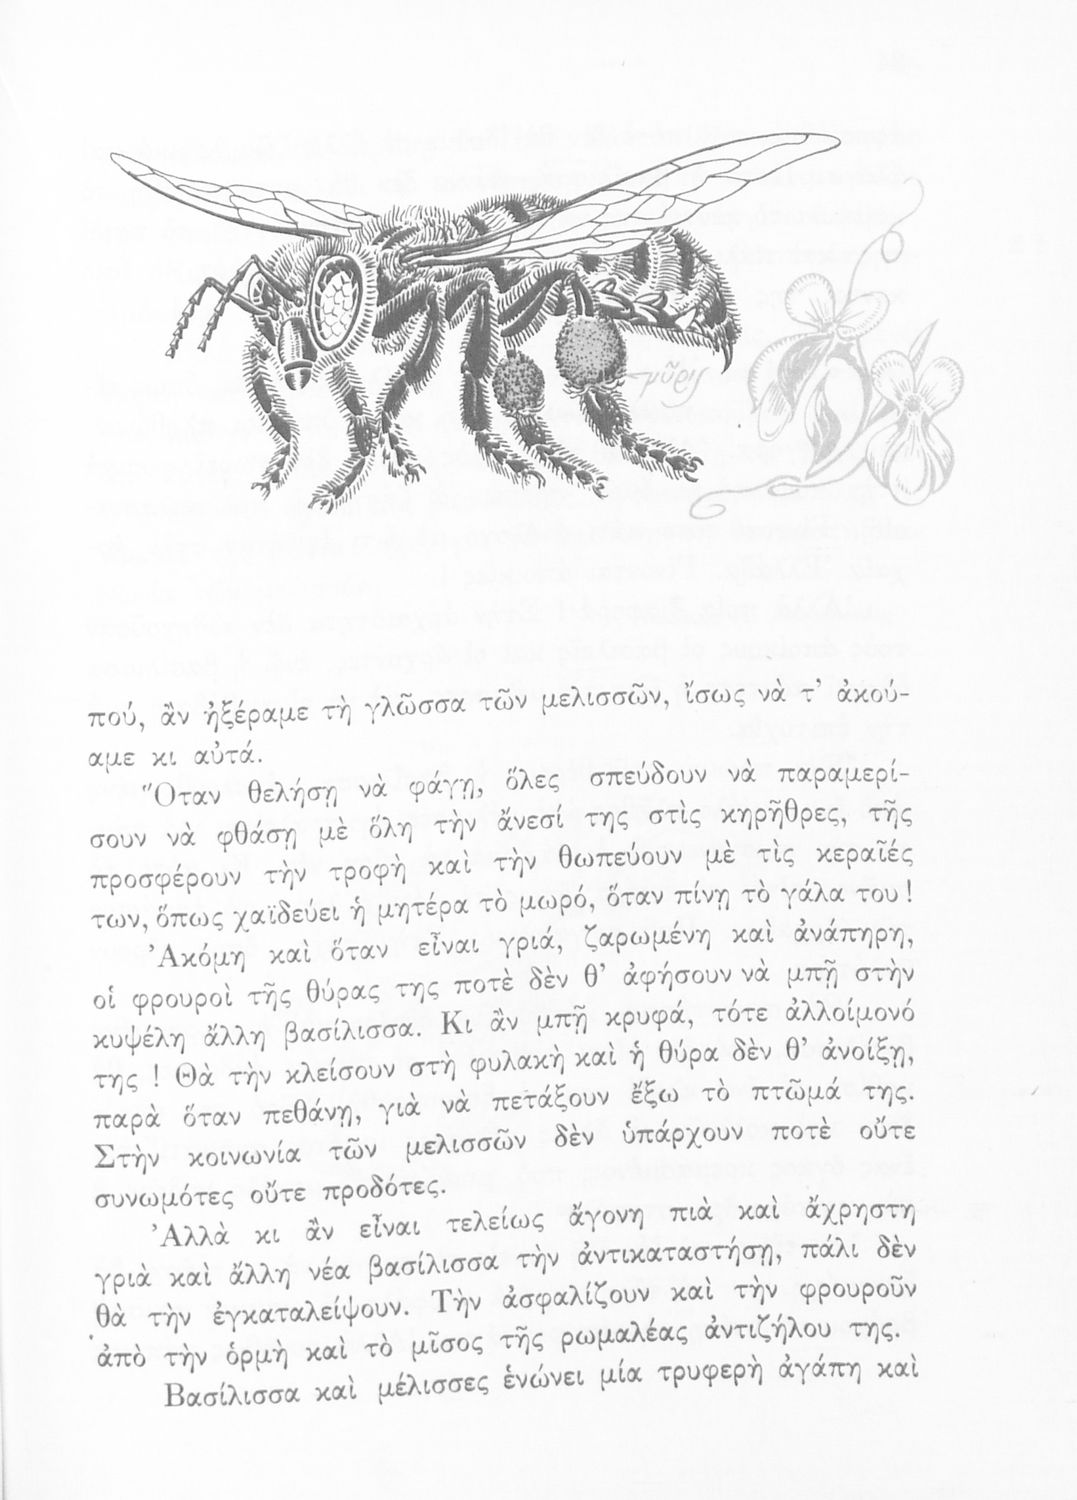 γῦρις
πού, ἂν ἠξέραμε τὴ γλῶσσα τῶν μελισσῶν, ἴσως νὰ τ’ ἀκού-
αμε κι αὐτά.
Ὅταν θελήσῃ νὰ φάγῃ, ὅλες σπεύδουν νὰ παραμερί-
σουν νὰ φθάσῃ μὲ ὅλη τὴν ἄνεσί της στὶς κηρῆθρες, τῆς
προσφέρουν τὴν τροφὴ καὶ τὴν θωπεύουν μὲ τὶς κεραῖές
των, ὅπως χαϊδεύει ἡ μητέρα τὸ μωρό, ὅταν πίνῃ τὸ γάλα του !
Ἀκόμη καὶ ὅταν εἶναι γριά, ζαρωμένη καὶ ἀνάπηρη,
οἱ φρουροὶ τῆς θύρας της ποτὲ δὲν θ’ ἀφήσουν νὰ μπῇ στὴν
κυψέλη ἄλλη βασίλισσα. Κι ἂν μπῇ κρυφά, τότε ἀλλοίμονό
της ! Θὰ τὴν κλείσουν στὴ φυλακὴ καὶ ἡ θύρα δὲν θ’ ἀνοίξῃ,
παρὰ ὅταν πεθάνῃ, γιὰ νὰ πετάξουν ἔξω τὸ πτῶμά της.
Στὴν κοινωνία τῶν μελισσῶν δὲν ὑπάρχουν ποτὲ οὔτε
συνωμότες οὔτε προδότες.
Ἀλλὰ κι ἂν εἶναι τελείως ἄγονη πιὰ καὶ ἄχρηστη
γριὰ καὶ ἄλλη νέα βασίλισσα τὴν ἀντικαταστήσῃ, πάλι δὲν
θὰ τὴν ἐγκαταλείψουν. Τὴν ἀσφαλίζουν καὶ τὴν φρουροῦν
ἀπὸ τὴν ὁρμὴ καὶ τὸ μῖσος τῆς ρωμαλέας ἀντιζήλου της.
Βασίλισσα καὶ μέλισσες ἑνώνει μία τρυφερὴ ἀγάπη καὶ